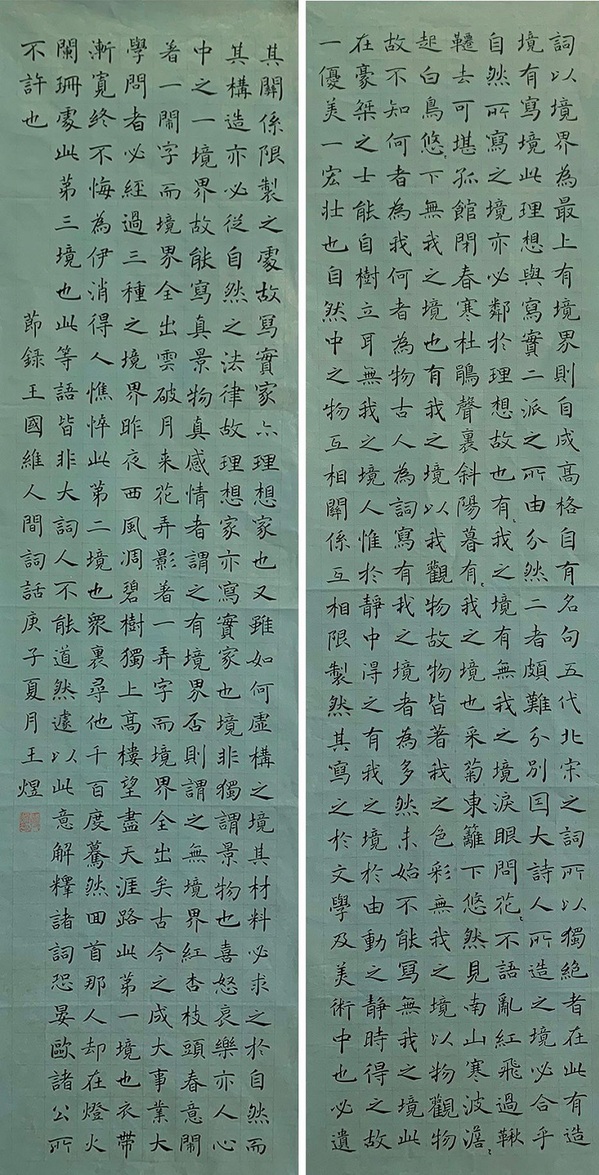 詞以境界為最上有境界則自成高格自有名句五代北宋之詞所以獨絕者在此有造
境有寫境此理想與寫實二派之所由分然二者頗難分別囙大詩人所造之境必合乎
自然所寫之境亦必鄰於理想故也有我之境有無我之境淚眼問花〻不語亂紅飛過鞦
韆去可堪孤館閉春寒杜鵑聲裏斜陽暮有我之境也采菊東籬下悠然見南山寒波澹〻
起白鳥悠〻下無我之境也有我之境以我觀物故物皆著我之色彩無我之境以物觀物
故不知何者為我何者為物古人為詞寫有我之境者為多然未始不能寫無我之境此
在豪桀之士能自樹立耳無我之境人惟於靜中得之有我之境於由動之靜時得之故
一優美一宏壯也自然中之物互相關係互相限製然其寫之於文學及美術中也必遺
其關係限製之處故寫實家亦理想家也又雖如何虛構之境其材料必求之於自然而
其構造亦必從自然之法律故理想家亦寫實家也境非獨謂景物也喜怒哀樂亦人心
中之一境界故能寫真景物真感情者謂之有境界否則謂之無境界紅杏枝頭春意鬧
著一鬧字而境界全出雲破月来花弄影著一弄字而境界全出矣古今之成大事業大
學問者必經過三種之境界昨夜西風凋碧樹獨上高樓望盡天涯路此第一境也衣帶
漸寬終不悔為伊消得人憔悴此第二境也眾裏尋他千百度驀然回首那人却在燈火
闌珊處此第三境也此等語皆非大詞人不能道然遽以此意解釋諸詞恐晏歐諸公所
不許也
節錄王國維人間詞話庚子夏月王煜